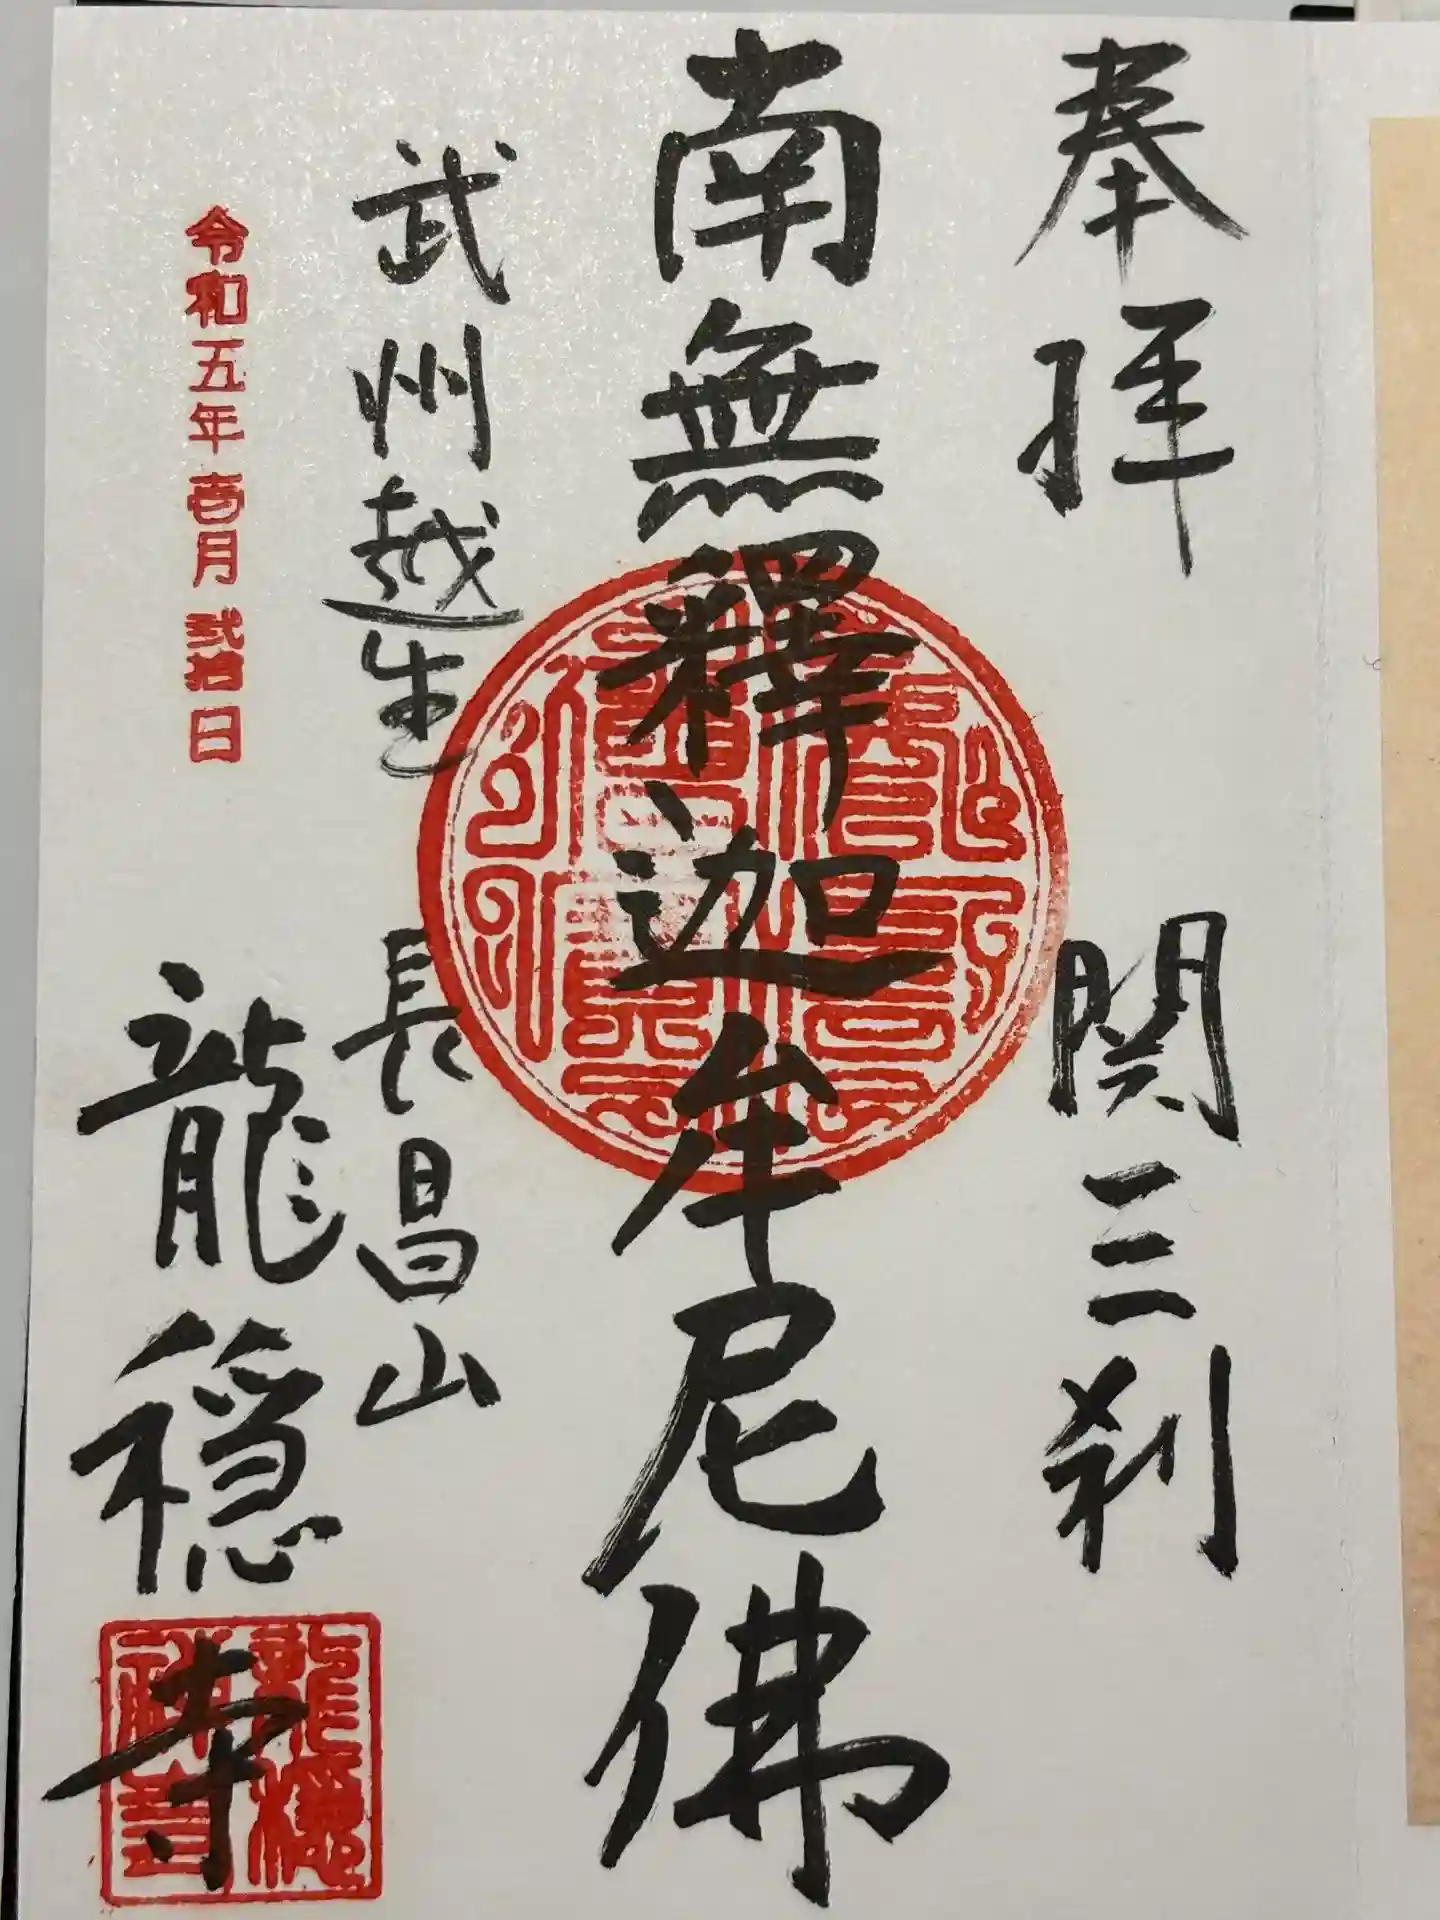 奉拝
関三刹
南無釋迦牟尼佛
武州越生
長昌山
龍穏寺
令和五年壱月弐拾日
龍穏
禅寺